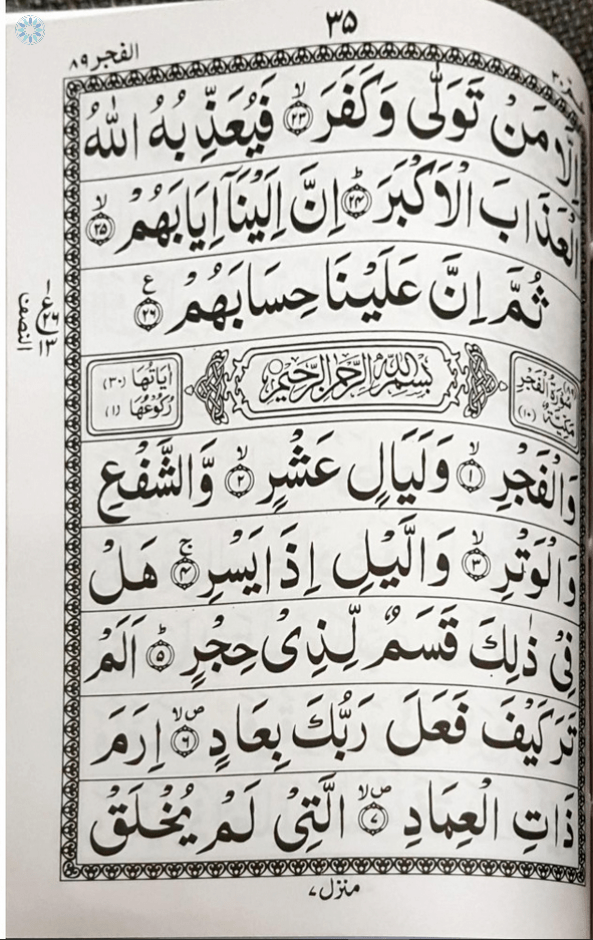 ٣٥
الفجر ٨٩
اِلَّا مَنْ تَوَلّٰى وَكَفَرَ ﴿٢٣﴾ ۙ فَيُعَذِّبُهُ اللّٰهُ
الْعَذَابَ الْاَكْبَرَ ﴿٢٤﴾ ؕ اِنَّ اِلَيْنَاۤ اِيَابَهُمْ ﴿٢٥﴾ ۙ
ثُمَّ اِنَّ عَلَيْنَا حِسَابَهُمْ ﴿٢٦﴾ ع
سُوْرَةُ الْفَجْرِ
مَكِّيَّةٌ (١٠)
بِسْمِ اللّٰهِ الرَّحْمٰنِ الرَّحِيْمِ
اٰيَاتُهَا (٣٠)
رُكُوْعُهَا (١)
وَالْفَجْرِ ﴿١﴾ ۙ وَلَيَالٍ عَشْرٍ ﴿٢﴾ ۙ وَّالشَّفْعِ
وَالْوَتْرِ ﴿٣﴾ ۙ وَالَّيْلِ اِذَا يَسْرِ ﴿٤﴾ ۚ هَلْ
فِيْ ذٰلِكَ قَسَمٌ لِّذِيْ حِجْرٍ ﴿٥﴾ ؕ اَلَمْ
تَرَ كَيْفَ فَعَلَ رَبُّكَ بِعَادٍ ﴿٦﴾ ص ۙ اِرَمَ
ذَاتِ الْعِمَادِ ﴿٧﴾ ص ۙ الَّتِيْ لَمْ يُخْلَقْ
ع
٢٦
١٣
النصف
منزل ٧